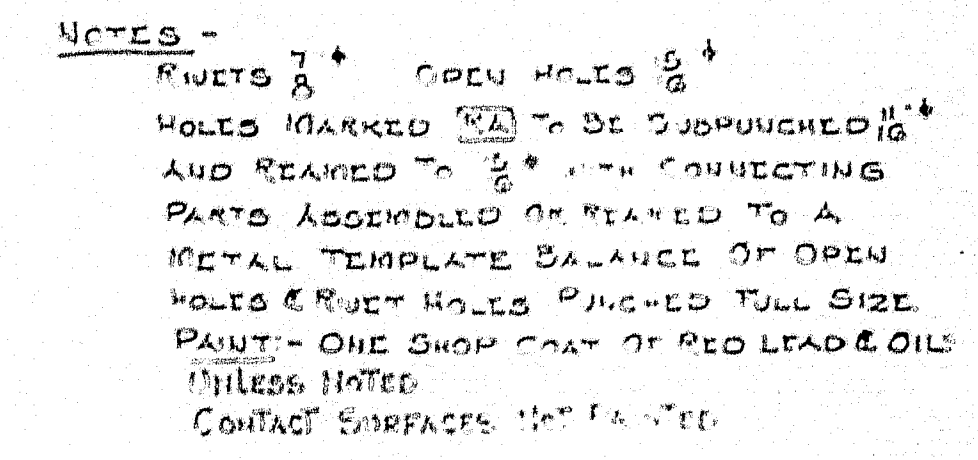 NOTES -
RIVETS 7/8 ϕ OPEN HOLES 15/16 ϕ
HOLES MARKED RA TO BE SUBPUNCHED 11/16" ϕ
AND REAMED TO 15/16 ϕ WITH CONNECTING
PARTS ASSEMBLED OR REAMED TO A
METAL TEMPLATE BALANCE OF OPEN
HOLES & RIVET HOLES PUNCHED FULL SIZE
PAINT:- ONE SHOP COAT OF RED LEAD & OIL
UNLESS NOTED
CONTACT SURFACES NOT PAINTED